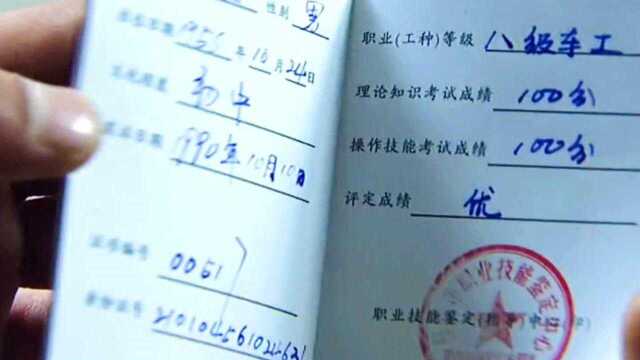 性别 男
出生日期 1956年10月24日
文化程度 初中
发证日期 1990年10月10日
证书编号 0051
身份证号
职业(工种)等级 八级车工
理论知识考试成绩 100分
操作技能考试成绩 100分
评定成绩 优
职业技能鉴定(指导)中心(印)
职业技能鉴定中心